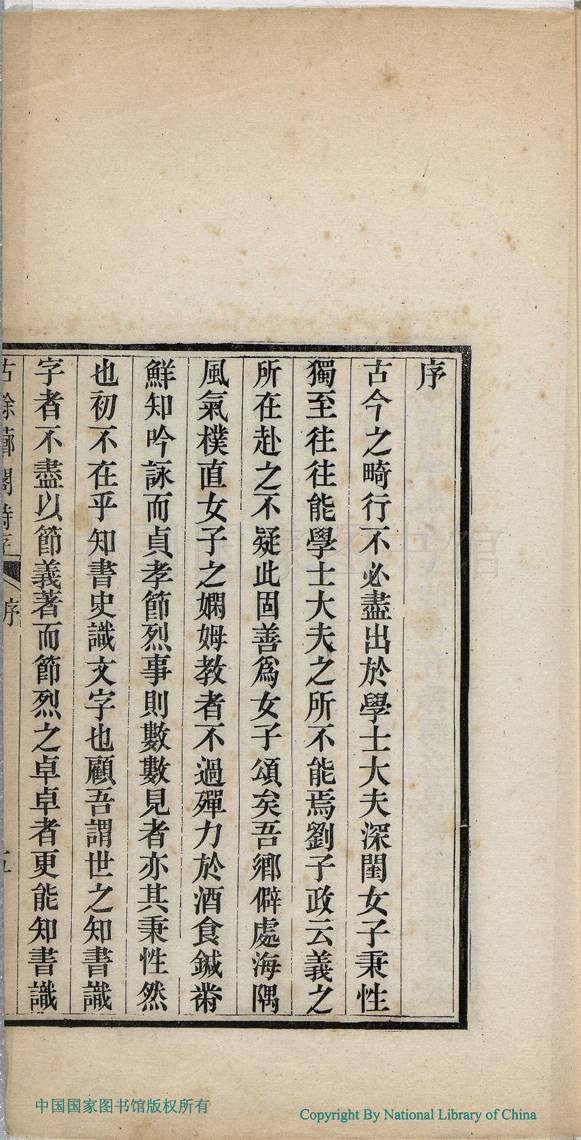 序
古今之畸行不必盡出於學士大夫深閨女子秉性
獨至往往能學士大夫之所不能焉劉子政云義之
所在赴之不疑此固善爲女子頌矣吾鄉僻處海隅
風氣樸直女子之嫻姆教者不過殫力於酒食鍼黹
鮮知吟詠而貞孝節烈事則數數見者亦其秉性然
也初不在乎知書史識文字也顧吾謂世之知書識
字者不盡以節義著而節烈之卓卓者更能知書識
序
五
中国国家图书馆版权所有
Copyright By National Library of China